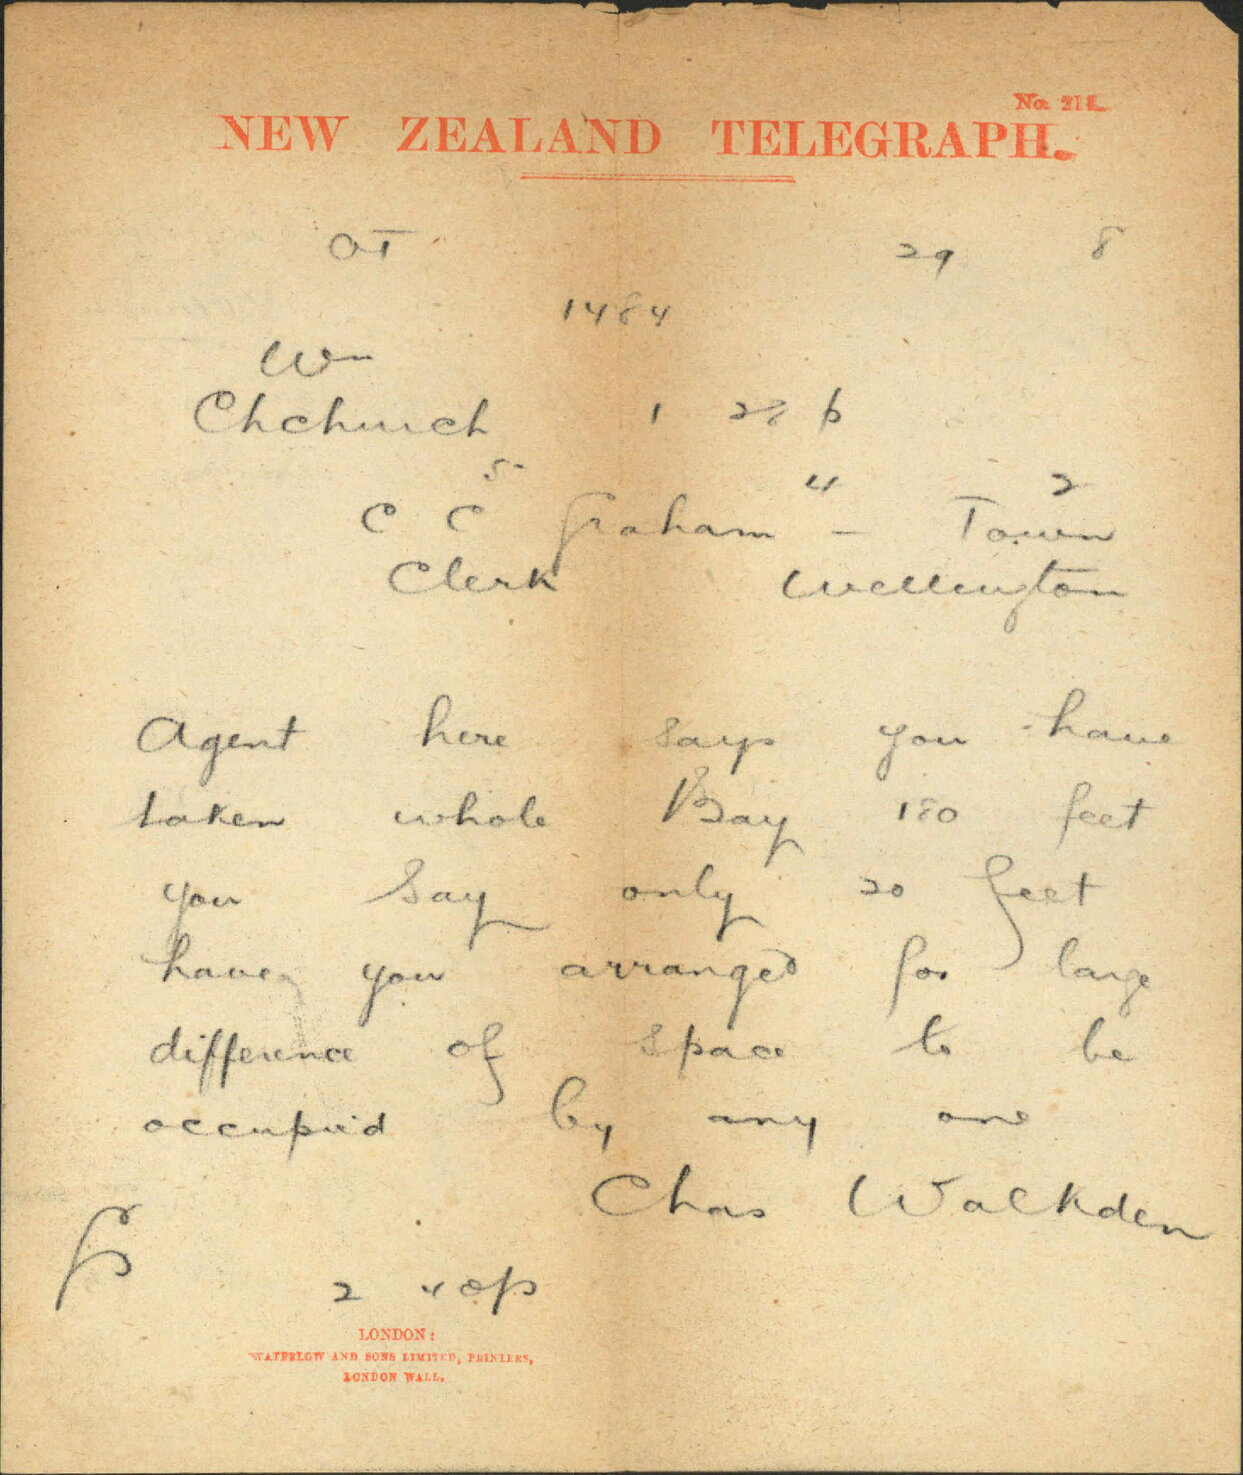 No. 21
NEW ZEALAND TELEGRAPH.
OT 29 8
1484
Wn
Chchurch 1 28 p
5 4 2
C C Graham - Town
Clerk Wellington
Agent here says you have
taken whole Bay 180 feet
you say only 20 feet
have you arranged for large
difference of space to be
occupied by any one
Chas Walkden
2 40p
LONDON:
WATERLOW AND SONS LIMITED, PRINTERS,
LONDON WALL.